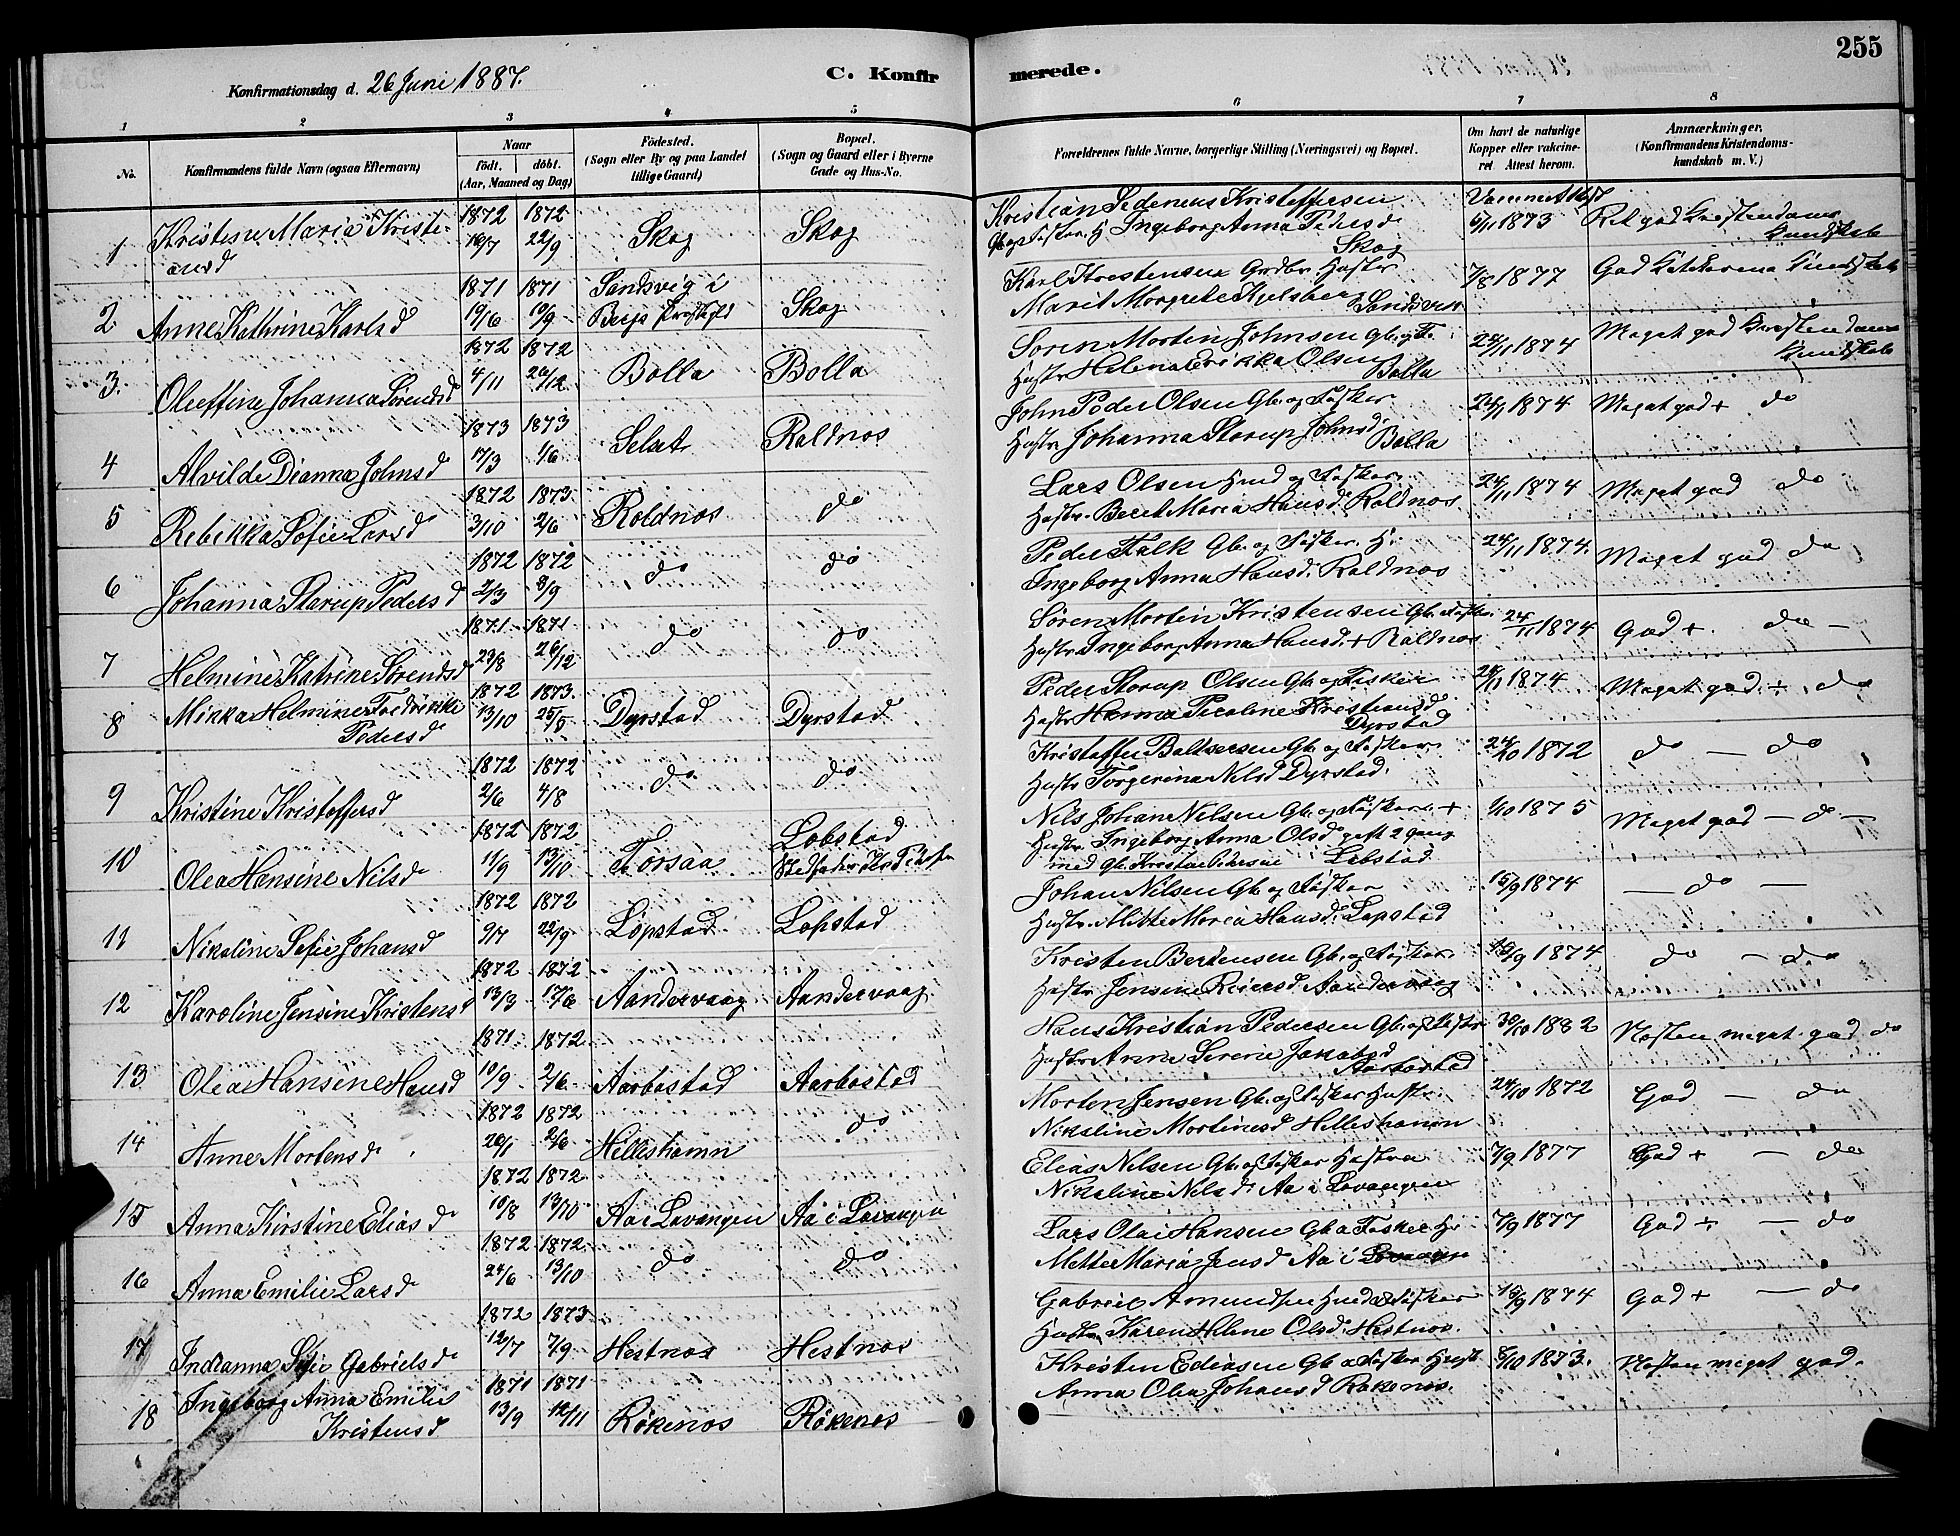 255
Konfirmationsdag d. 26 Juni 1887.
C. Konfirmerede.
1 2 3 4 5 6 7 8
No.
Konfirmandens fulde Navn (ogsaa Efternavn)
Naar
født. døbt.
(Aar, Maaned og Dag)
Fødested.
(Sogn eller By og paa Landet
tillige Gaard)
Bopæl.
(Sogn og Gaard eller i Byerne
Gade og Hus-No.
Forældrenes fulde Navne, borgerlige Stilling (Næringsvei) og Bopæl.
Om havt de naturlige
Kopper eller vakcine-
ret. Attest herom.
Anmærkninger.
(Konfirmandens Kristendoms-
kundskab m. V.)
1 Kristine Maria Kristi-
ansd 1872 16/7 1872 22/9 Skog Skog
Kristian Pedersen Kristoffersen
Gb og Fisker H Ingeborg Anna Pedersd
Skog
6/11 1873
god Kristendoms
Kundskab
2 Anne Kathrine Karlsd 1871 19/6 1871 10/9 Sandvig i
Bergs Skog
Karl Kristensen Grdbr Hustr
Marit Margrete Sandvik
7/8 1877 God Kundskab
3. Oleffine Johanna Sørensd 1872 4/11 1872 26/12 Bolla Bolla
Søren Morten Johnsen Gb. og F.
Hustr Helena Erikka Olsen
Bolla
24/11 1874 Meget god Kristendoms
Kundskab
4 Alvilde Dianna Johnsd 1873 17/3 1873 1/6 Selset Roldnes
John Peder Olsen Gb. og Fisker
Hustr Johanna Storup Johnsd
Bolla
24/11 1874 Meget god + do
5 Rebekka Sofie Larsd 1872 3/10 1873 2/6 Roldnes do
Lars Olsen Husd og Fisker
Hustr. Beret Maria Hansd. Roldnes
24/11 1874 Meget god do
6 Johanna Starup Pedersd 1872 2/3 1872 8/9 do do
Peder Falk Gb. og Fisker. H.
Ingeborg Anna Hansd. Roldnes
24/11 1874. Meget god do
7 Helmine Katrine Sørensd 1871 23/8 1871 26/12 do do
Søren Morten Kristensen Gb. Fisker
Hustr Ingeborg Anna Hansd. + Roldnes
24/11 1874 God + do —
8 Mikka Helmine Fredrikke
Pedersd 1872 13/10 1873 25/5 Dyrstad Dyrstad
Peder Storup Olsen Gb. og Fisker
Hustr Hanna Kristiansd
Dyrstad
24/11 1874 Meget god + do
9 Kristine Kristoffersd 1872 2/6 1872 4/8 do do
Kristoffer Baltsersen Gb. og Fisker
Hustr Torgerina Nilsd Dyrstad.
24/10 1872 do — do
10 Olea Hansine Nilsd 1872 11/9 1872 13/10 Forsaa Løbstad
Nils Johan Nilsen Gb. og Fisker +
Hustr. Ingeborg Anna Olsd gift 2 gang
med Gb. Kristian Løbstad
1/10 1875 Meget god — do —
11 Nikoline Sofie Johansd 1872 9/7 1872 22/9 Løpstad Løpstad
Johan Nilsen Gb. og Fisker
Hustr. Mitte Maria Hansd. Løpstad
15/9 1874 — do —
12 Karoline Jensine Kristensd 1872 13/3 1872 17/6 Aandervaag Aandervaag
Kristen Bertensen Gb. og Fisker
Hustr Jensine Reiersd Aandervaag
15/9 1874 do — do
13 Olea Hansine Hansd 1871 10/9 1872 2/6 Aarbostad Aarbostad
Hans Kristian Pedersen Gb. og Fisker
Hustr Anne Serene Jakobsd
Aarbostad
30/10 1882 Næsten meget god do
14 Anne Mortensd 1872 26/1 1872 2/6 Hilleshamn do
Morten Jensen Gb. og Fisker Hustr.
Nikoline Martinusd Hilleshamn
24/10 1872 God — do
15 Anna Kirstine Eliasd 1872 10/8 1872 13/10 Aa i Lavangen Aa i Lavangen
Elias Nilsen Gb. og Fisker Hustru
Nikoline Nilsd. Aa i Lavangen
7/9 1877 God + — do
16 Anna Emilie Larsd 1872 24/6 1872 13/10 do do
Lars Olai Hansen Gb & Fisker H.
Mette Maria Jensd Aa i Lavangen
7/9 1877 God + — do
17 Indianna Sofie Gabrielsd 1872 12/7 1873 7/9 Hestnes Hestnes
Gabriel Amundsen Husd & Fisker
Hustr. Karen Helene Olsd. Hestnes.
15/9 1874 God + — do
18 Ingeborg Anna Emilie
Kristensd 1871 13/9 1871 12/11 Røkenes Røkenes
Kristen Ediasen Gb & Fisker Hust
Anna Olea Johansd Røkenes.
8/10 1873. Næsten meget god.